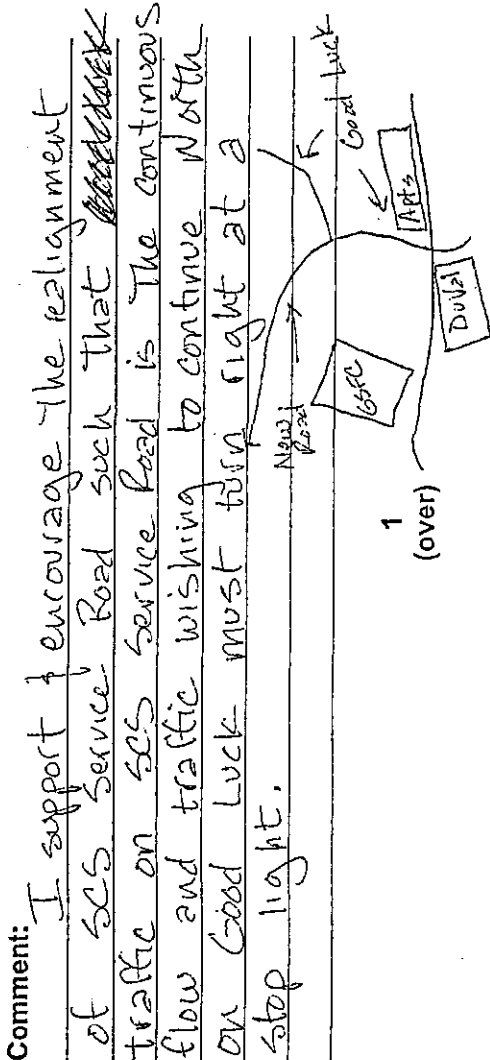 Comment:
I support & encourage The realignment
of SCS Service Road such that
traffic on SCS Service Road is The continuous
flow and traffic wishing to continue North
on Good Luck must turn right at a
stop light.
New
Road
Good Luck
GSFC
Apts
DuVal
1
(over)